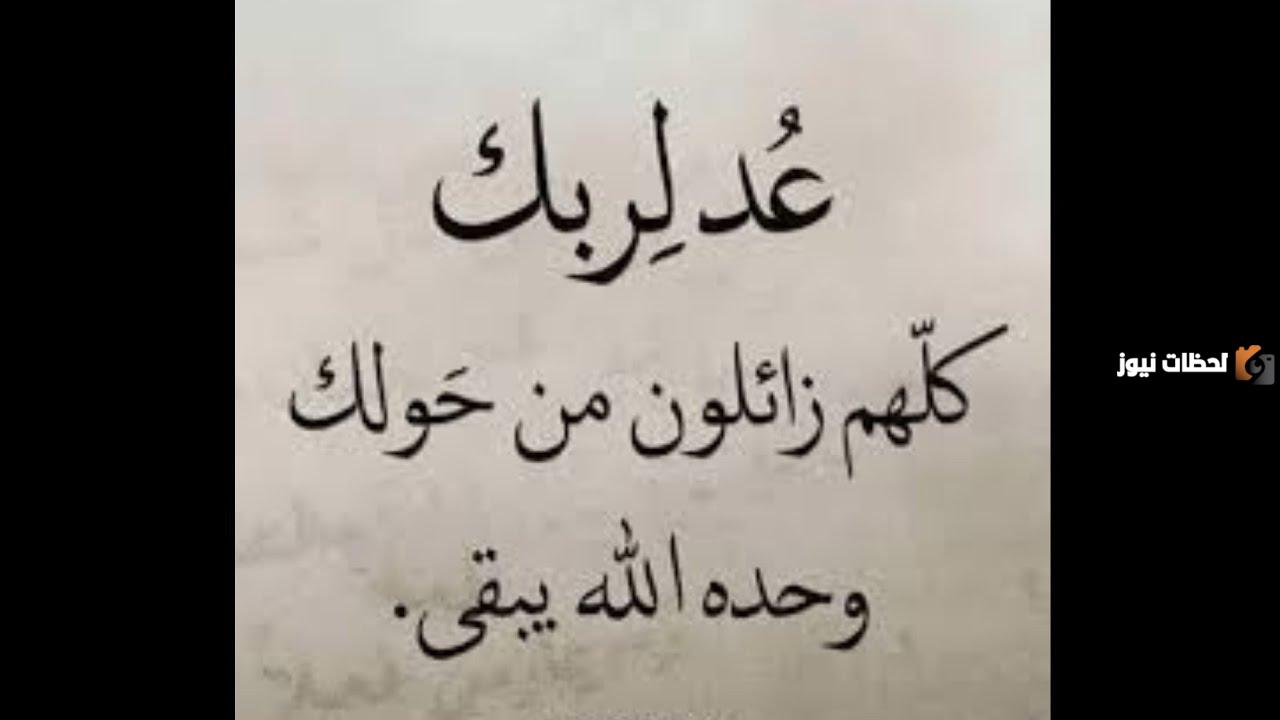 عُد لِربك
كلّهم زائلون من حَولك
وحده الله يبقى.
لحظات نيوز